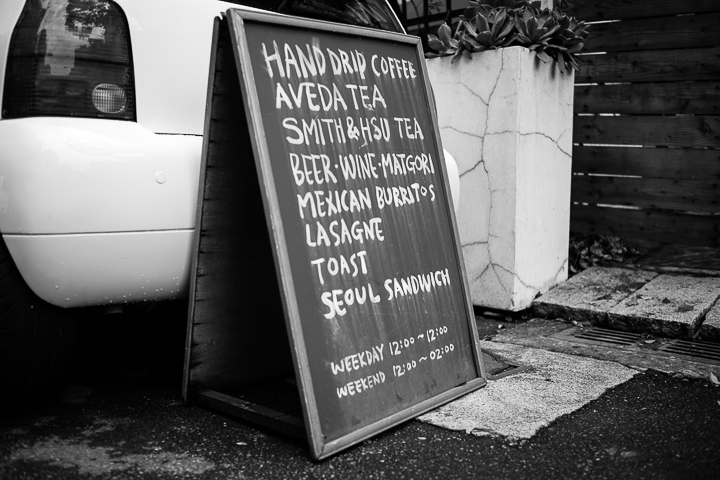 HAND DRIP COFFEE
AVEDA TEA
SMITH&HSU TEA
BEER·WINE·MATGORI
MEXICAN BURRITOS
LASAGNE
TOAST
SEOUL SANDWICH
WEEKDAY 12:00~12:00
WEEKEND 12:00~02:00